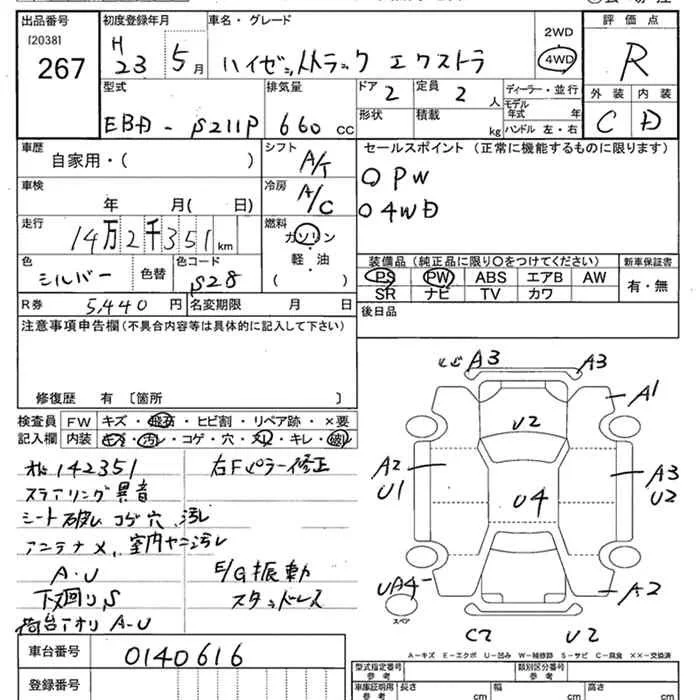 出品番号 初度登録年月 車名・グレード 評価点
[2038] H23 5月 ハイゼットトラック エクストラ 2WD 4WD R
267
型式 排気量 ドア 定員 ディーラー・並行 外装 内装
EBD-S211P 660cc 2 2人 モデル年式 年 C D
形状 積載 kg ハンドル 左・右
車歴 自家用・( ) シフト A/T セールスポイント(正常に機能するものに限ります)
車検 年 月( 日) 冷房 A/C ○PW
走行 14万2千351km 燃料 ガソリン・軽・油( ) ○4WD
色 シルバー 色替 色コード S28 装備品(純正品に限り○をつけてください) 新車保証書
PS PW ABS エアB AW 有・無
SR ナビ TV カワ
R券 5,440円 名変期限 月 日 後日品
注意事項申告欄(不具合内容等は具体的に記入して下さい)
修復歴 有 〔箇所 〕
検査員 FW キズ・飛石・ヒビ割・リペア跡・×要
記入欄 内装 キズ・汚レ・コゲ・穴・スレ・キレ・破レ
142351 右Fピラー修正
ステアリング異音
シート破レ コゲ穴 汚レ
アンテナメ、室内ヤニ汚レ
A・U E/G振動
下廻りS スタッドレス
荷台アオリ A-U
ヒビ A3 A3
A1
U2
A2 U1 U4 A3 U2
UA4 A2
スペア
C2 U2
A-キズ E-エクボ U-凹み W-補修跡 S-サビ C-腐食 ××-交換済
車台番号 0140616
登録番号
型式指定番号 参考 類別区分番号 参考
車庫証明用 参考 長さ cm 幅 cm 高さ cm